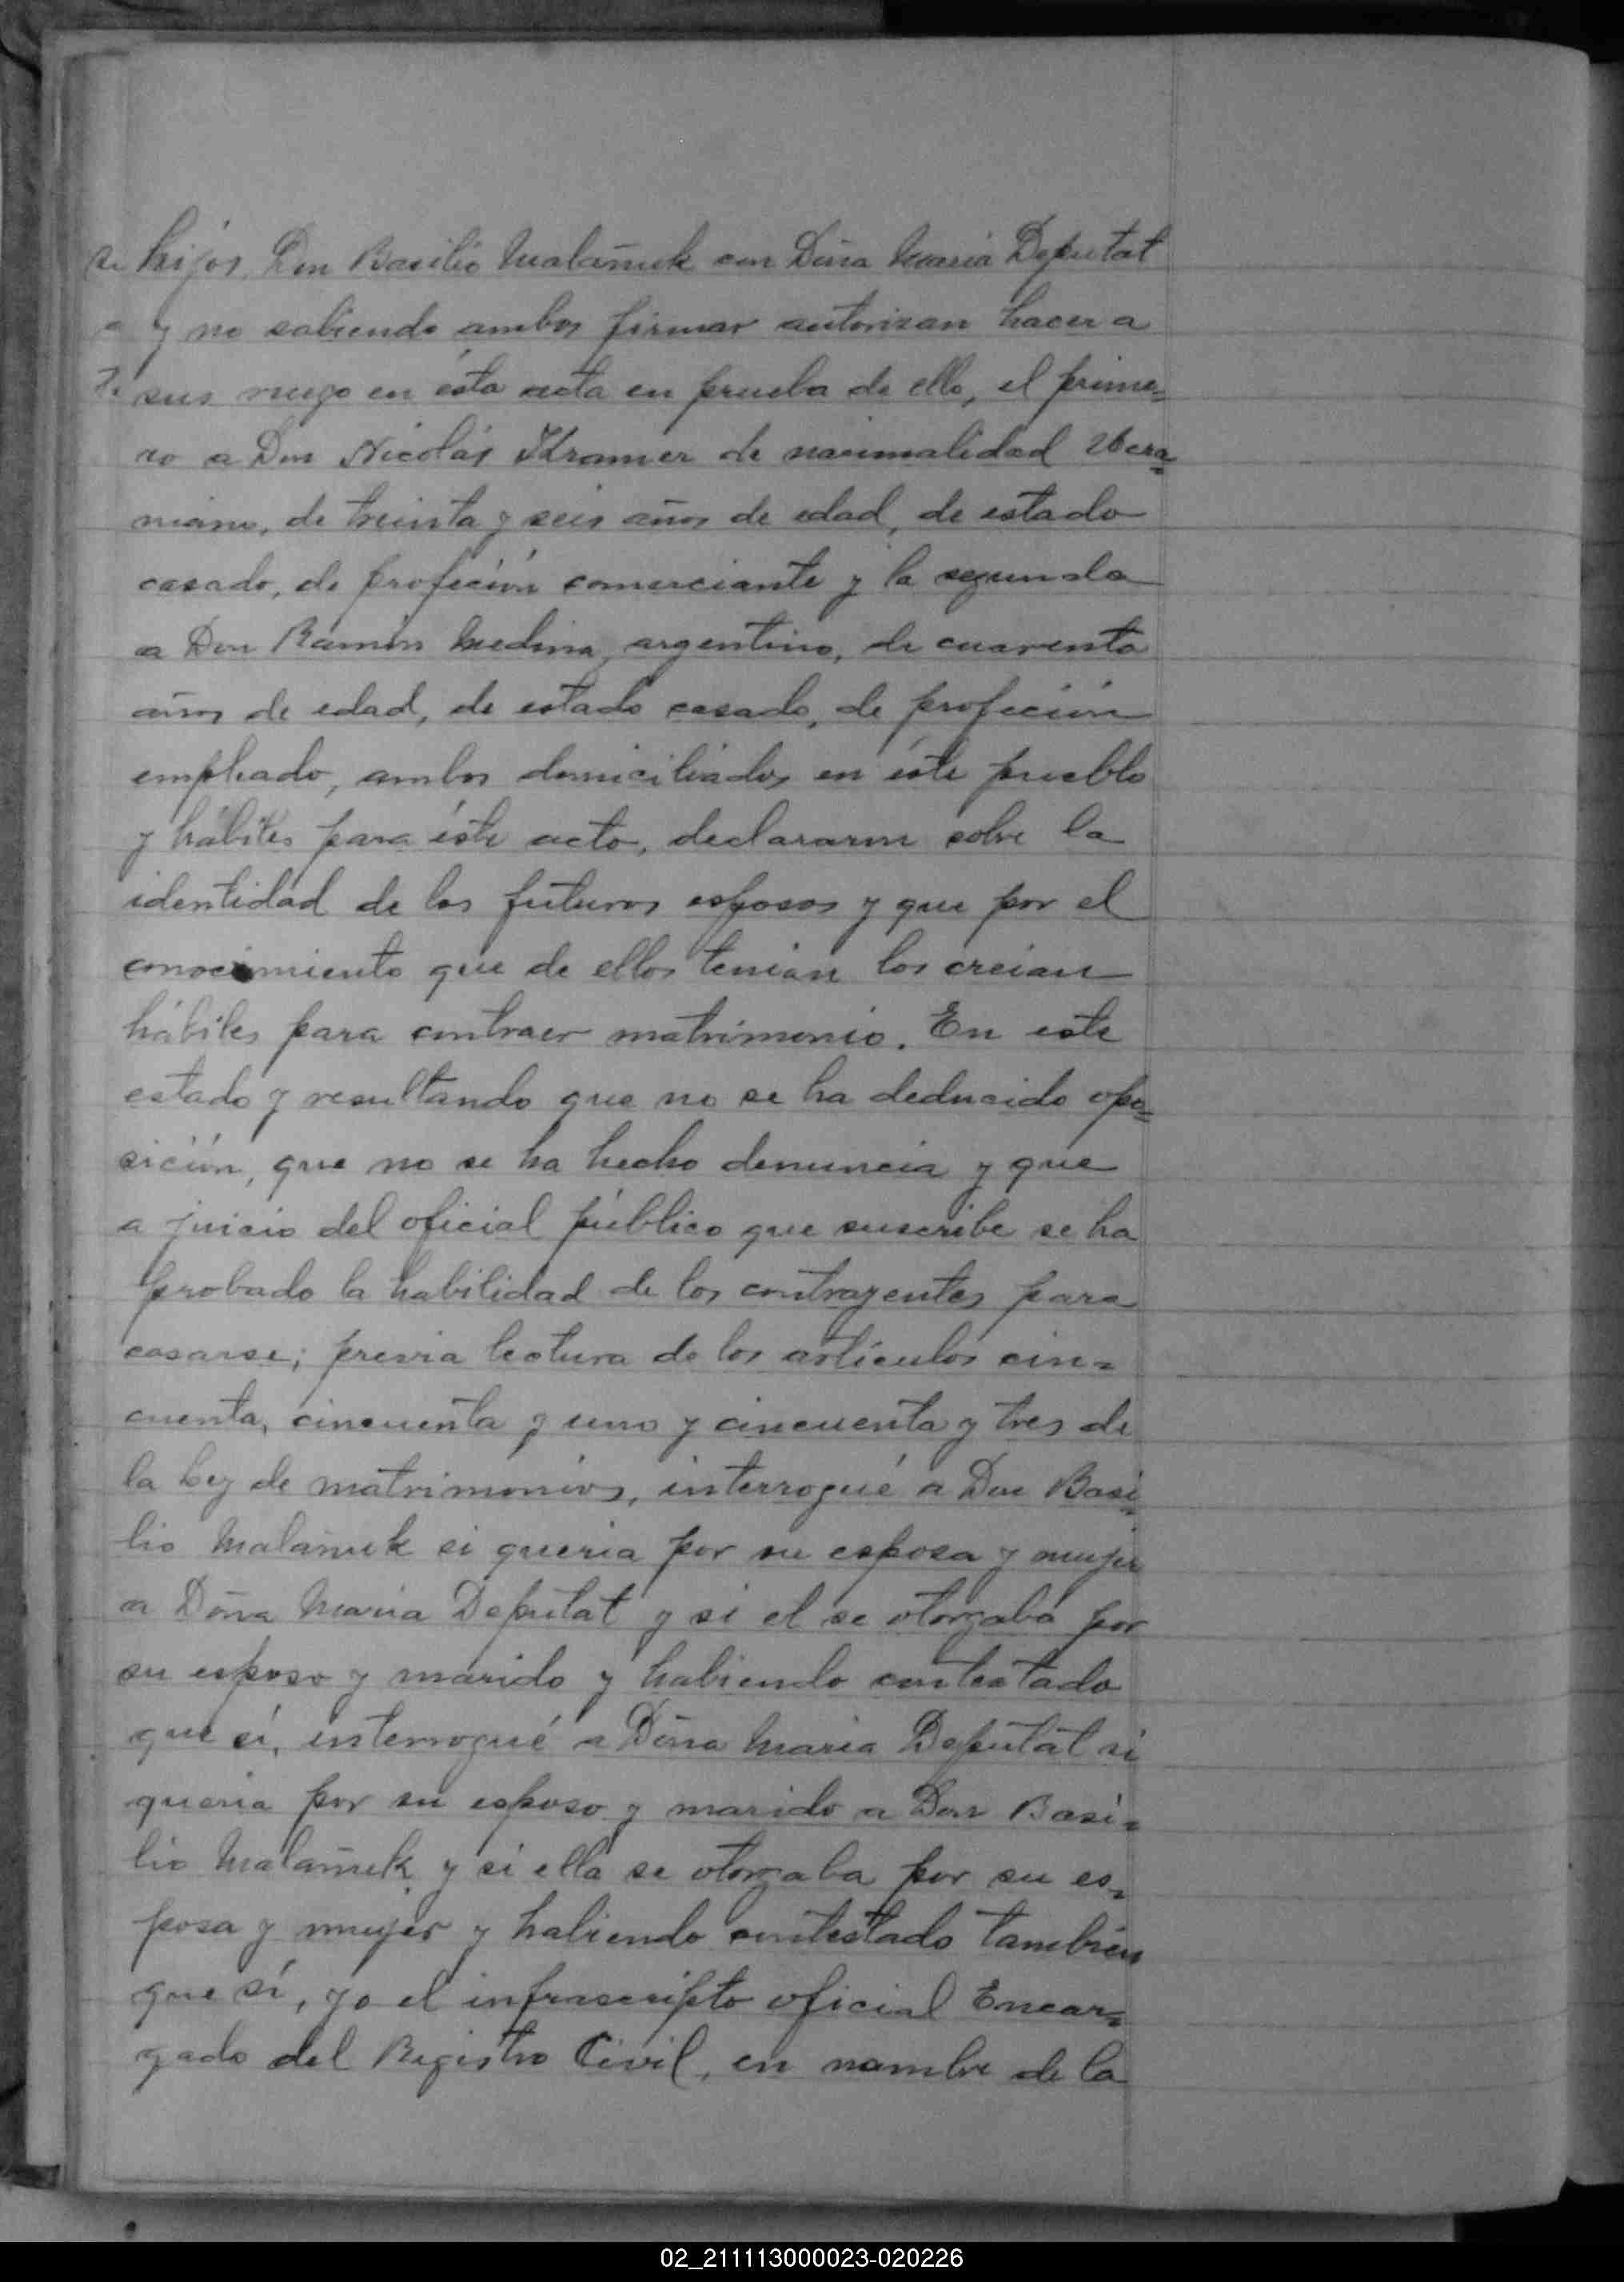 hijos, Don Basilio Malañuk con Doña Maria Deputat
y no sabiendo ambos firmar autorizan hacer a
sus ruego en ésta acta en prueba de ello, el prime=
ro a Don Nicolás Kramer de nacionalidad Ucra=
niano, de treinta y seis años de edad, de estado
casado, de profeción comerciante y la segunda
a Don Ramón Medina, argentino, de cuarenta
años de edad, de estado casado, de profeción
empleado, ambos domiciliados en éste pueblo
y hábiles para éste acto, declararon sobre la
identidad de los futuros esposos y que por el
conocimiento que de ellos tenian los creian
hábiles para contraer matrimonio. En este
estado y resultando que no se ha deducido opo=
sición, que no se ha hecho denuncia y que
a juicio del oficial público que suscribe se ha
probado la habilidad de los contrayentes para
casarse; previa lectura de los artículos cin=
cuenta, cincuenta y uno y cincuenta y tres de
la Ley de matrimonios, interrogué a Don Basi=
lio Malañuk si queria por su esposa y mujer
a Doña Maria Deputat y si el se otorgaba por
su esposo y marido y habiendo contestado
que sí, interrogué a Doña Maria Deputat si
queria por su esposo y marido a Don Basi=
lio Malañuk y si ella se otorgaba por su es=
posa y mujer y habiendo contestado también
que sí, yo el infrascripto oficial Encar=
gado del Registro Civil, en nombre de la
02_211113000023-020226